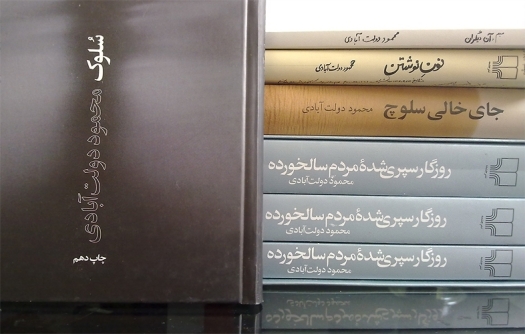 سُلوک
محمود دولت‌آبادی
چاپ دهم
محمود دولت‌آبادی
نون نوشتن
محمود دولت‌آبادی
جای خالی سلوچ
محمود دولت‌آبادی
روزگار سپری‌شدهٔ مردم سالخورده
محمود دولت‌آبادی
روزگار سپری‌شدهٔ مردم سالخورده
محمود دولت‌آبادی
روزگار سپری‌شدهٔ مردم سالخورده
محمود دولت‌آبادی